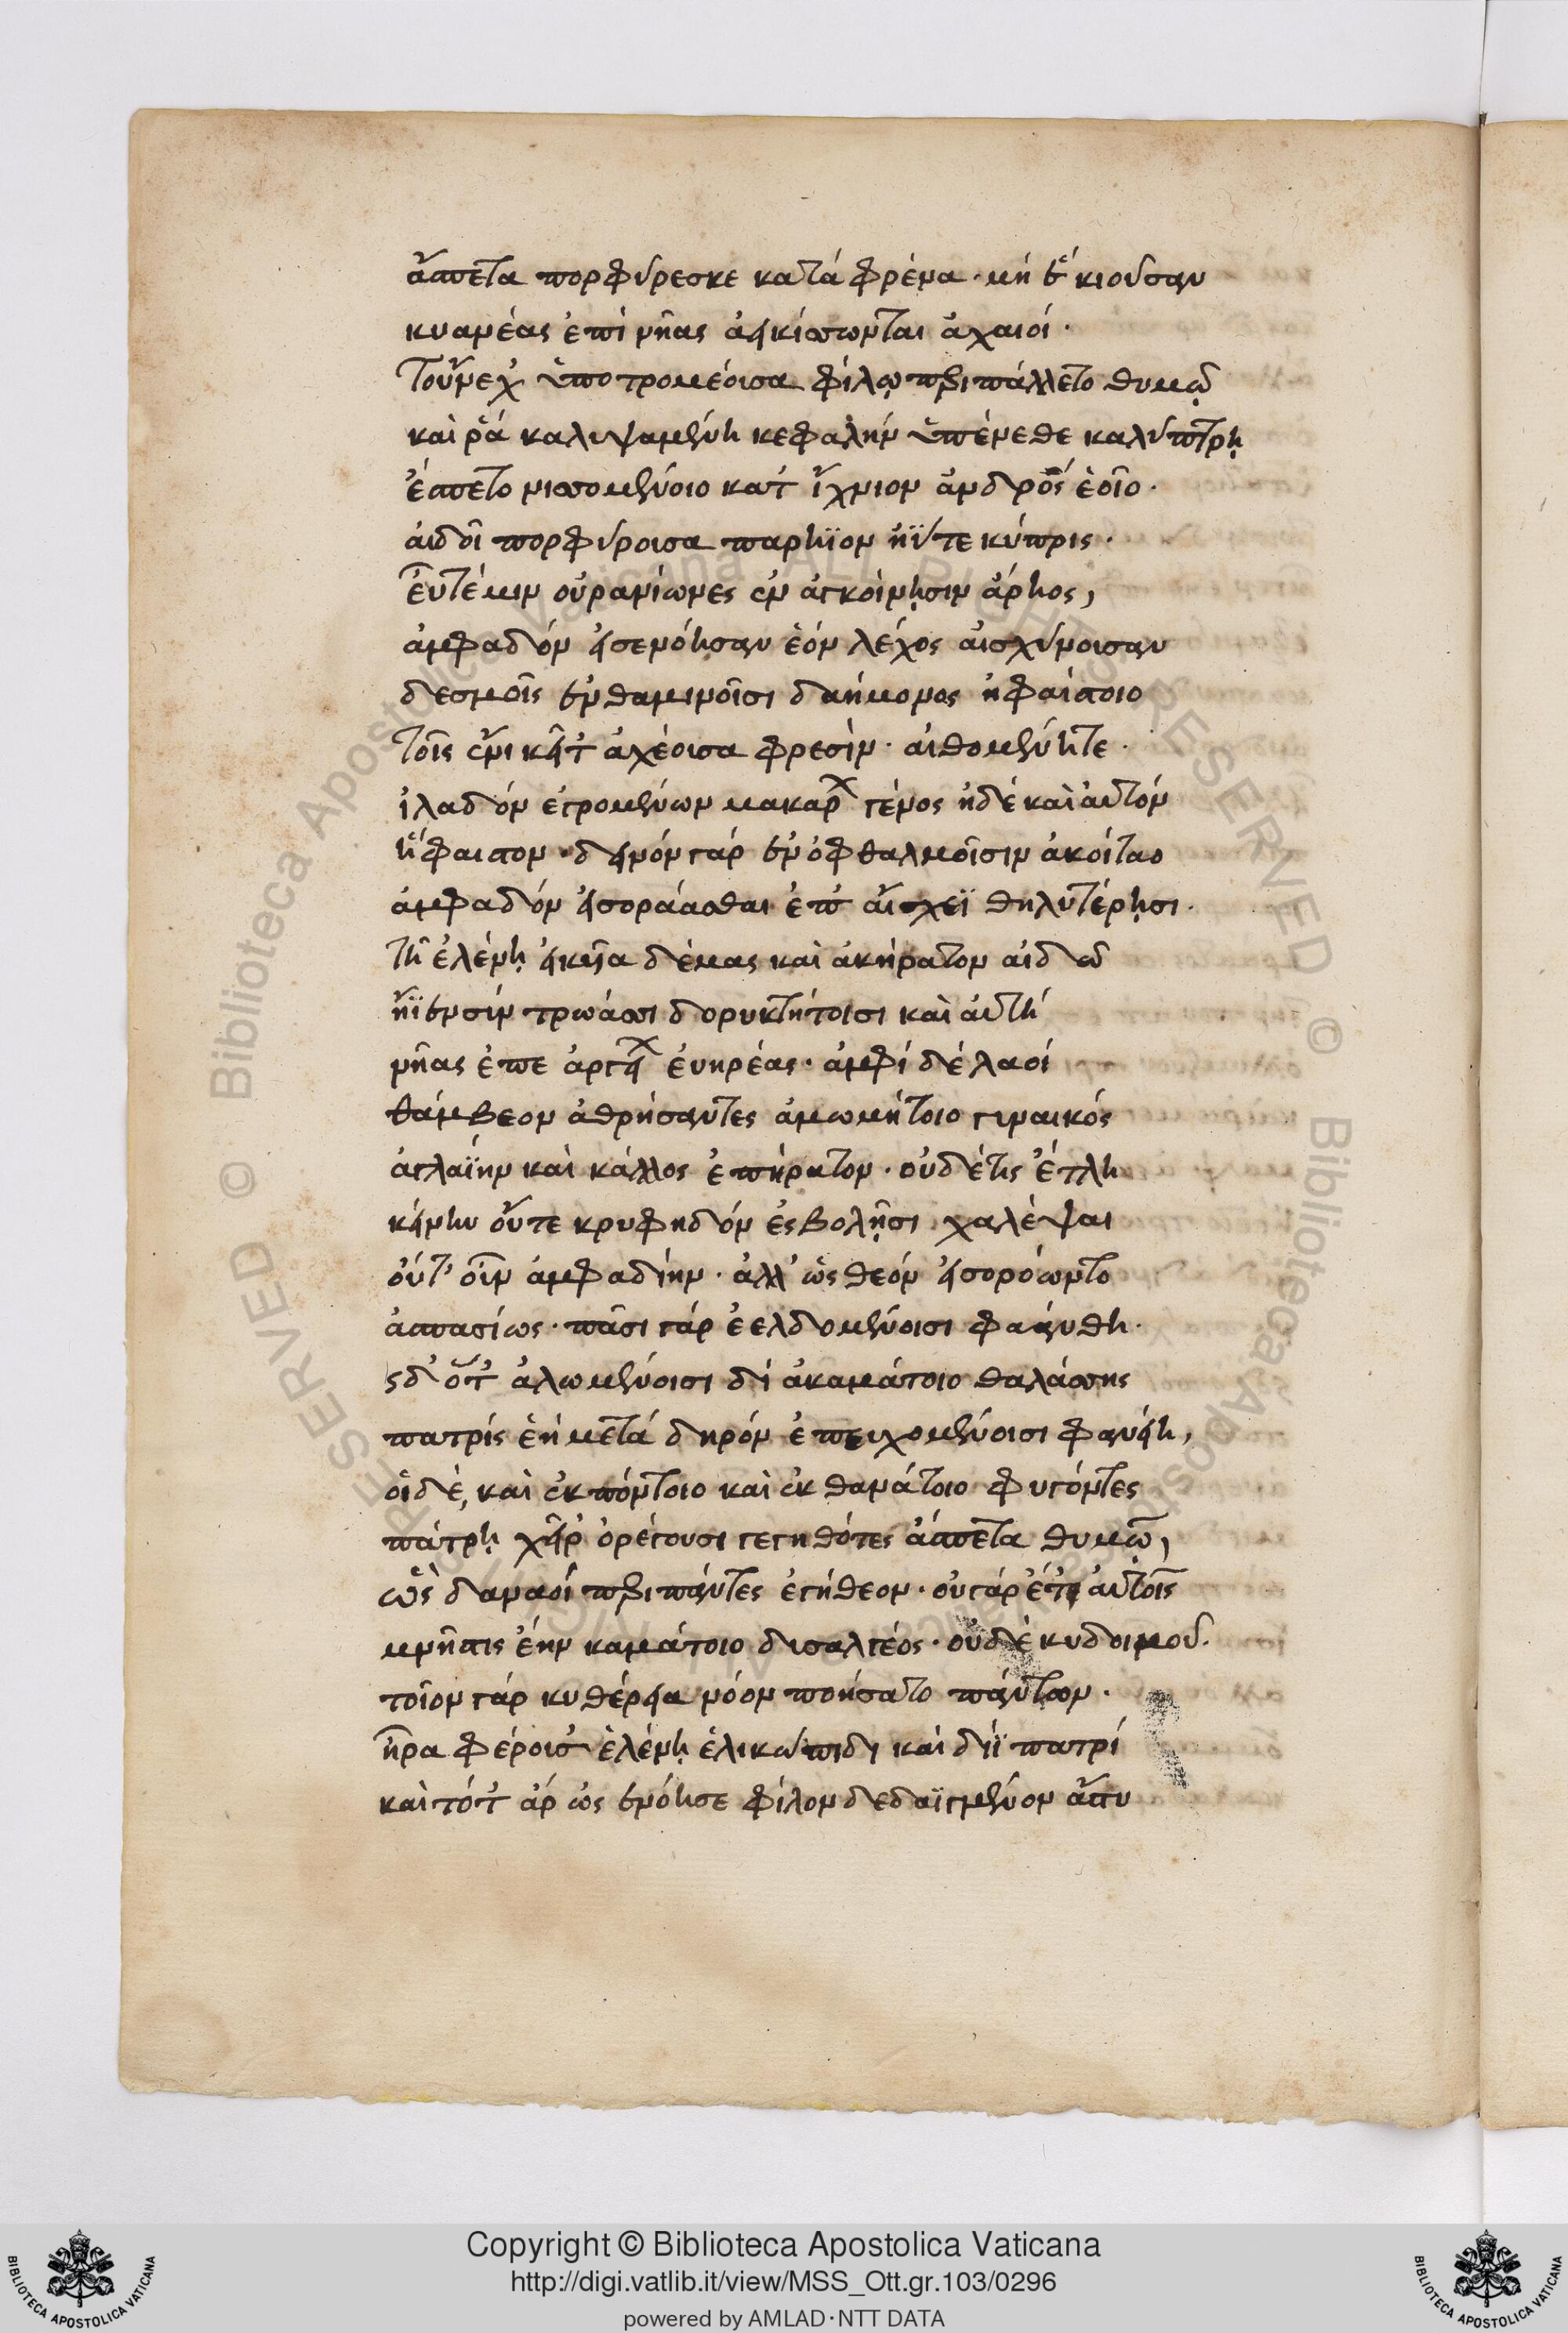 ἄσπετα πορφύρεσκε κατὰ φρένα· μή ἑ κιοῦσαν
κυανέας ἐπὶ νῆας ἀεικίσσωνται ἀχαιοί·
τοὔνεχ' ὑποτρομέουσα φίλῳ περιπάλλετο θυμῷ
καί ῥα καλυψαμένη κεφαλὴν ὑπένερθε καλύπτρῃ
ἕσπετο νισσομένοιο κατ' ἴχνιον ἀνδρὸς ἑοῖο·
αἰδοῖ πορφύρουσα παρήϊον ἠΰτε κύπρις·
εὖτέ μιν οὐρανίωνες ἐν ἀγκοίνῃσιν ἄρηος,
ἀμφαδὸν εἰσενόησαν ἑὸν λέχος αἰσχύνουσαν
δεσμοῖς ἐν θαμινοῖσι δαήμονος ἡφαίστοιο
τοῖς ἔνι κεῖτ' ἀχέουσα φρεσίν· αἰδομένη τε·
ἰλαδὸν ἀγρομένων μακάρων γένος ἠδὲ καὶ αὐτὸν
ἥφαιστον· δεινὸν γὰρ ἐν ὀφθαλμοῖσιν ἀκοίταο
ἀμφαδὸν εἰσοράασθαι ἐπ' αἴσχεϊ θηλυτέρῃσι·
τῇ ἑλένῃ εἰκυῖα δέμας καὶ ἀκήρατον αἰδῶ
ἤϊε σὺν τρωάσσι δορυκτήτοισι καὶ αὐτὴ
νῆας ἐπ' ἀργείων εὐηρέας· ἀμφὶ δὲ λαοὶ
θάμβεον ἀθρήσαντες ἀμωμήτοιο γυναικὸς
ἀγλαΐην καὶ κάλλος ἐπήρατον· οὐδέ τις ἔτλη
κείνην οὔτε κρυφηδὸν ἐσβολῇσι χαλέψαι
οὔτ' οὖν ἀμφαδίην· ἀλλ' ὡς θεὸν εἰσορόωντο
ἀσπασίως· πᾶσι γὰρ ἐελδομένοισι φαάνθη·
ὡς δ' ὅτ' ἀλωομένοισι δι' ἀκαμάτοιο θαλάσσης
πατρὶς ἑὴ μετὰ δηρὸν ἐπευχομένοισι φανείη,
οἱ δὲ, καὶ ἐκ πόντοιο καὶ ἐκ θανάτοιο φυγόντες
πάτρῃ χεῖρ' ὀρέγουσι γεγηθότες ἄσπετα θυμῷ,
ὣς δαναοὶ περιπάντες ἐγήθεον· οὐ γὰρ ἔτ' αὐτοῖς
μνῆστις ἔην καμάτοιο δυσαλγέος· οὐδὲ κυδοιμοῦ.
τοῖον γὰρ κυθέρεια νόον ποιήσατο πάντων·
ἦρα φέρουσ' ἑλένῃ ἑλικώπιδι καὶ διῒ πατρί
καὶ τότ' ἄρ' ὡς ἐνόησε φίλον δεδαϊγμένον ἄστυ
Copyright © Biblioteca Apostolica Vaticana
http://digi.vatlib.it/view/MSS_Ott.gr.103/0296
powered by AMLAD·NTT DATA